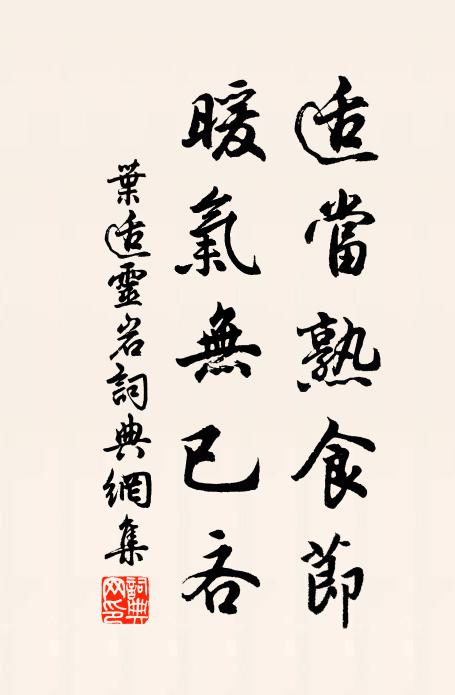 适當熟食節
暖氣無已吝
葉适靈岩詞典網集
詞典网印